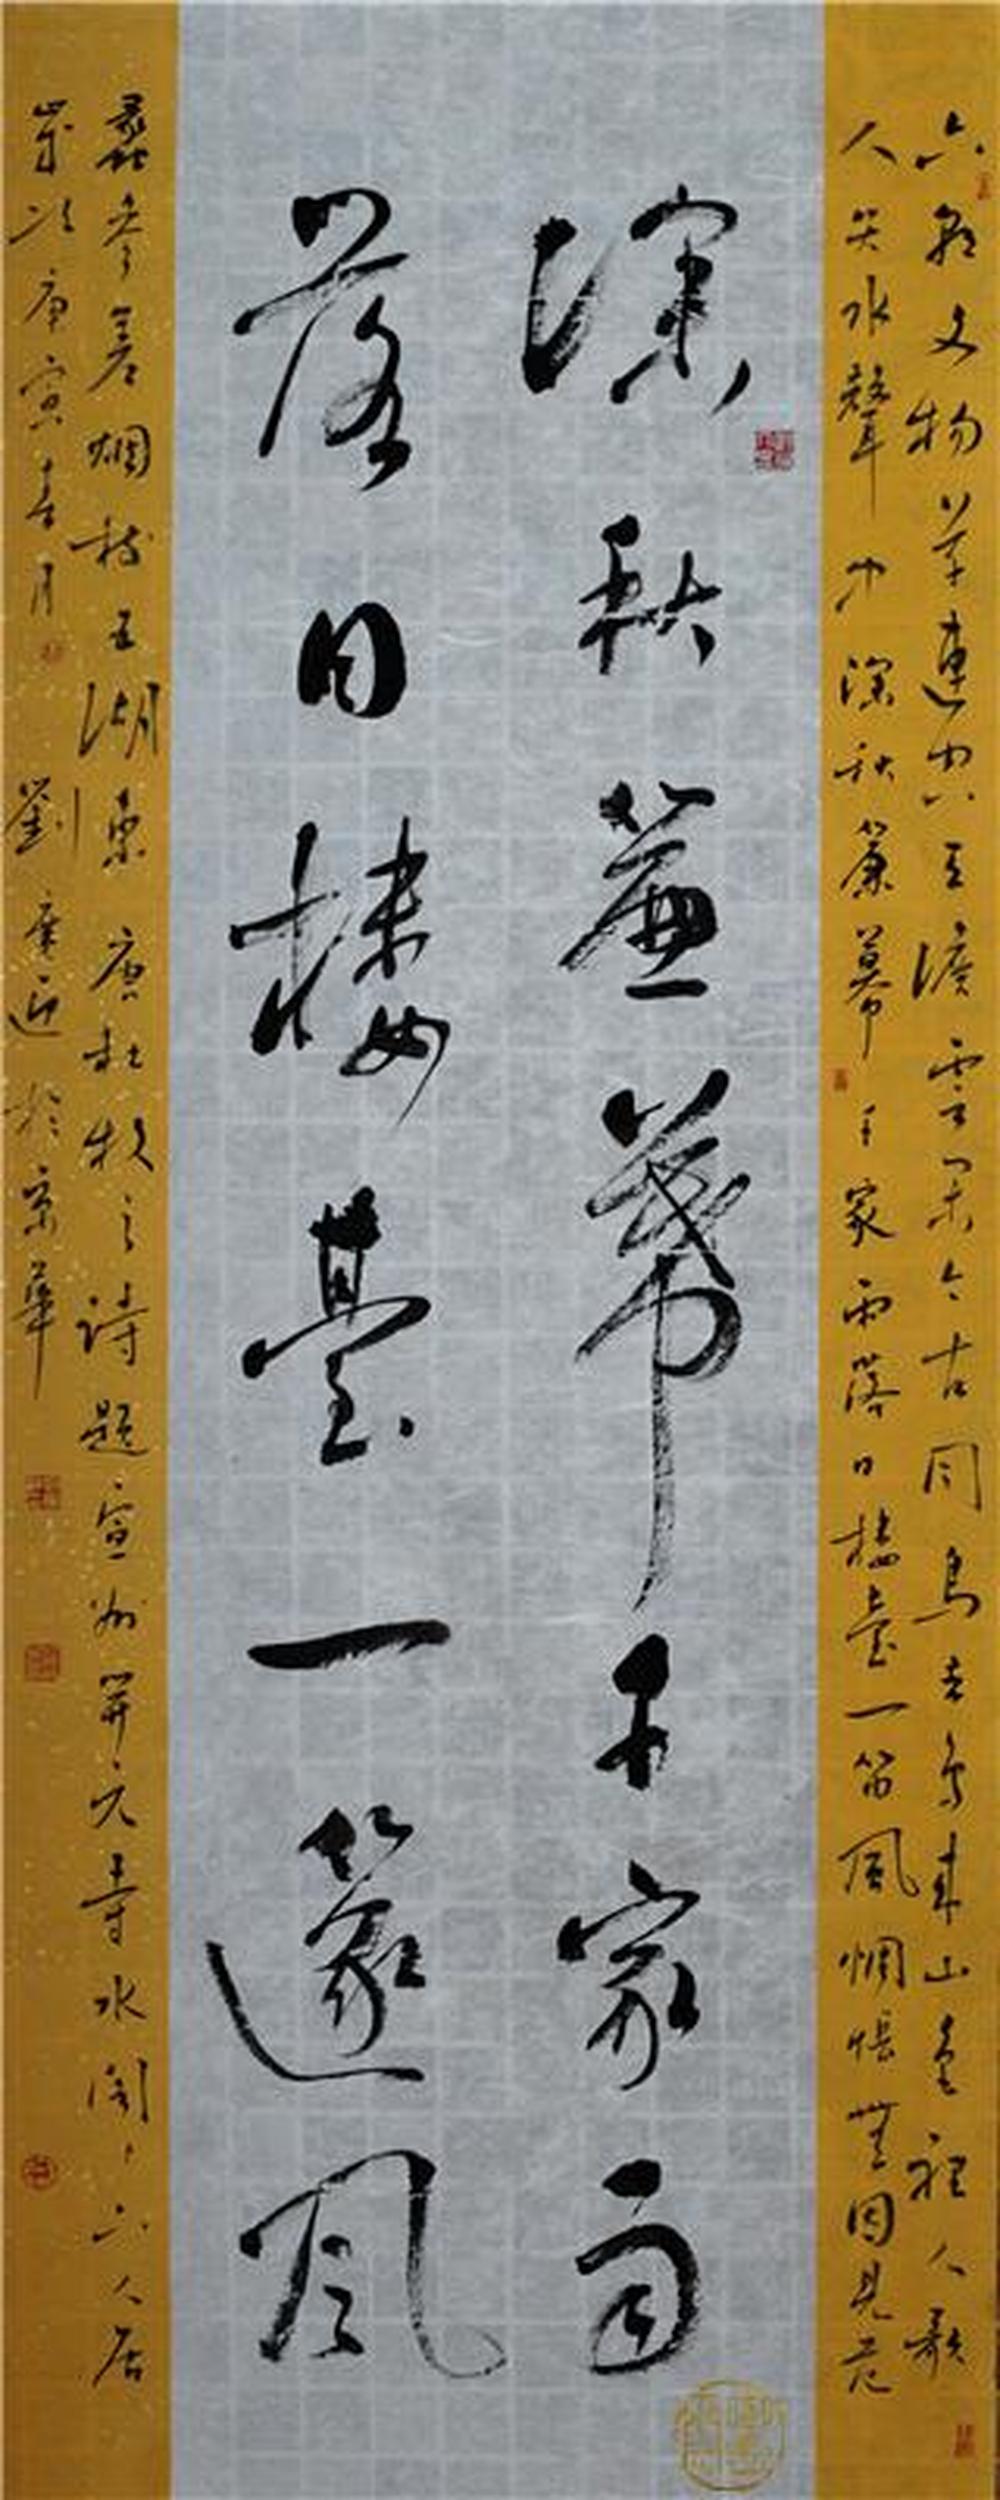 六朝文物草連空天澹雲閑今古同鳥去鳥來山色裡人歌
人哭水聲中深秋簾幕千家雨落日樓臺一笛風惆悵無因見范
深秋簾幕千家雨
落日樓臺一篴風
蠡參差烟樹五湖東 唐杜牧之詩題宣州開元寺水閣人居
歲次庚寅春月 劉廣迎於京華